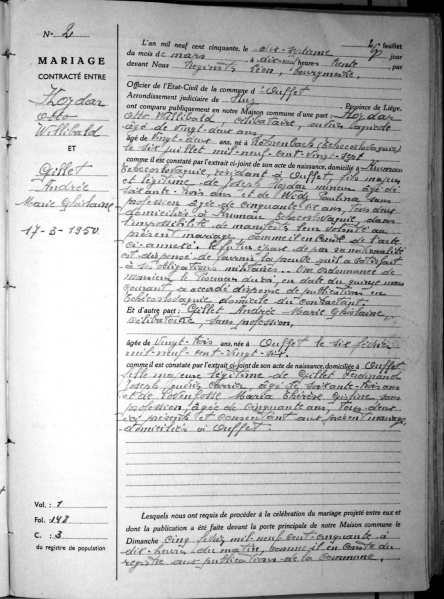 N° 2
MARIAGE
CONTRACTÉ ENTRE
Kozdar
Otto
Willibald
ET
Gillet
Andrée
Marie Ghislaine
17-3-1950
Vol. : 1
Fol. : 148
C. : 3
du registre de population
2e feuillet
L'an mil neuf cent cinquante, le dix-septième jour
du mois de mars à dix-neuf heures trente, par
devant Nous Léon, bourgmestre,
Officier de l'Etat-Civil de la commune d'Ouffet
Arrondissement judiciaire de Huy Province de Liége,
ont comparu publiquement en notre Maison commune d'une part : Kozdar
Otto Willibald célibataire, ouvrier
âgé de vingt-deux ans,
âgé de vingt-deux ans, né à (Tchécoslovaquie)
le six juillet mil-neuf-cent-vingt-sept
comme il est constaté par l'extrait ci-joint de son acte de naissance, domicilié à
Tchécoslovaquie, résidant à Ouffet, fils majeur
et légitime de Joseph Kozdar mineur âgé de
soixante-trois ans et de Paulina sans
profession âgée de cinquante six ans tous deux
domiciliés à Tchécoslovaquie, dans
l'impossibilité de manifester leur volonté au
présent mariage, comme il en résulte de l'acte
ci-annexé. Le futur époux de par sa nationalité
est dispensé de fournir la preuve qu'il a satisfait
à ses obligations militaires. Une ordonnance de
monsieur le Procureur du roi, en date du quinze mars
courant, a accordé dispense de publication en
Tchécoslovaquie domicile du contractant.
Et d'autre part : Gillet Andrée Marie Ghislaine,
célibataire, sans profession,
âgée de vingt-trois ans, née à Ouffet le six février
mil-neuf-cent-vingt-sept
comme il est constaté par l'extrait ci-joint de son acte de naissance, domiciliée à Ouffet,
fille majeure légitime de Gillet Ferdinand
Joseph, ouvrier carrier, âgé de soixante-trois ans
et de Maria Thérèse sans
profession, âgée de cinquante ans, tous deux
ici présents et consentant au présent mariage
domiciliés à Ouffet.
Lesquels nous ont requis de procéder à la célébration du mariage projeté entre eux et
dont la publication a été faite devant la porte principale de notre Maison commune le
Dimanche cinq février mil neuf cent-cinquante à
dix-heures du matin, comme il en conste du
registre aux publications de la Commune.